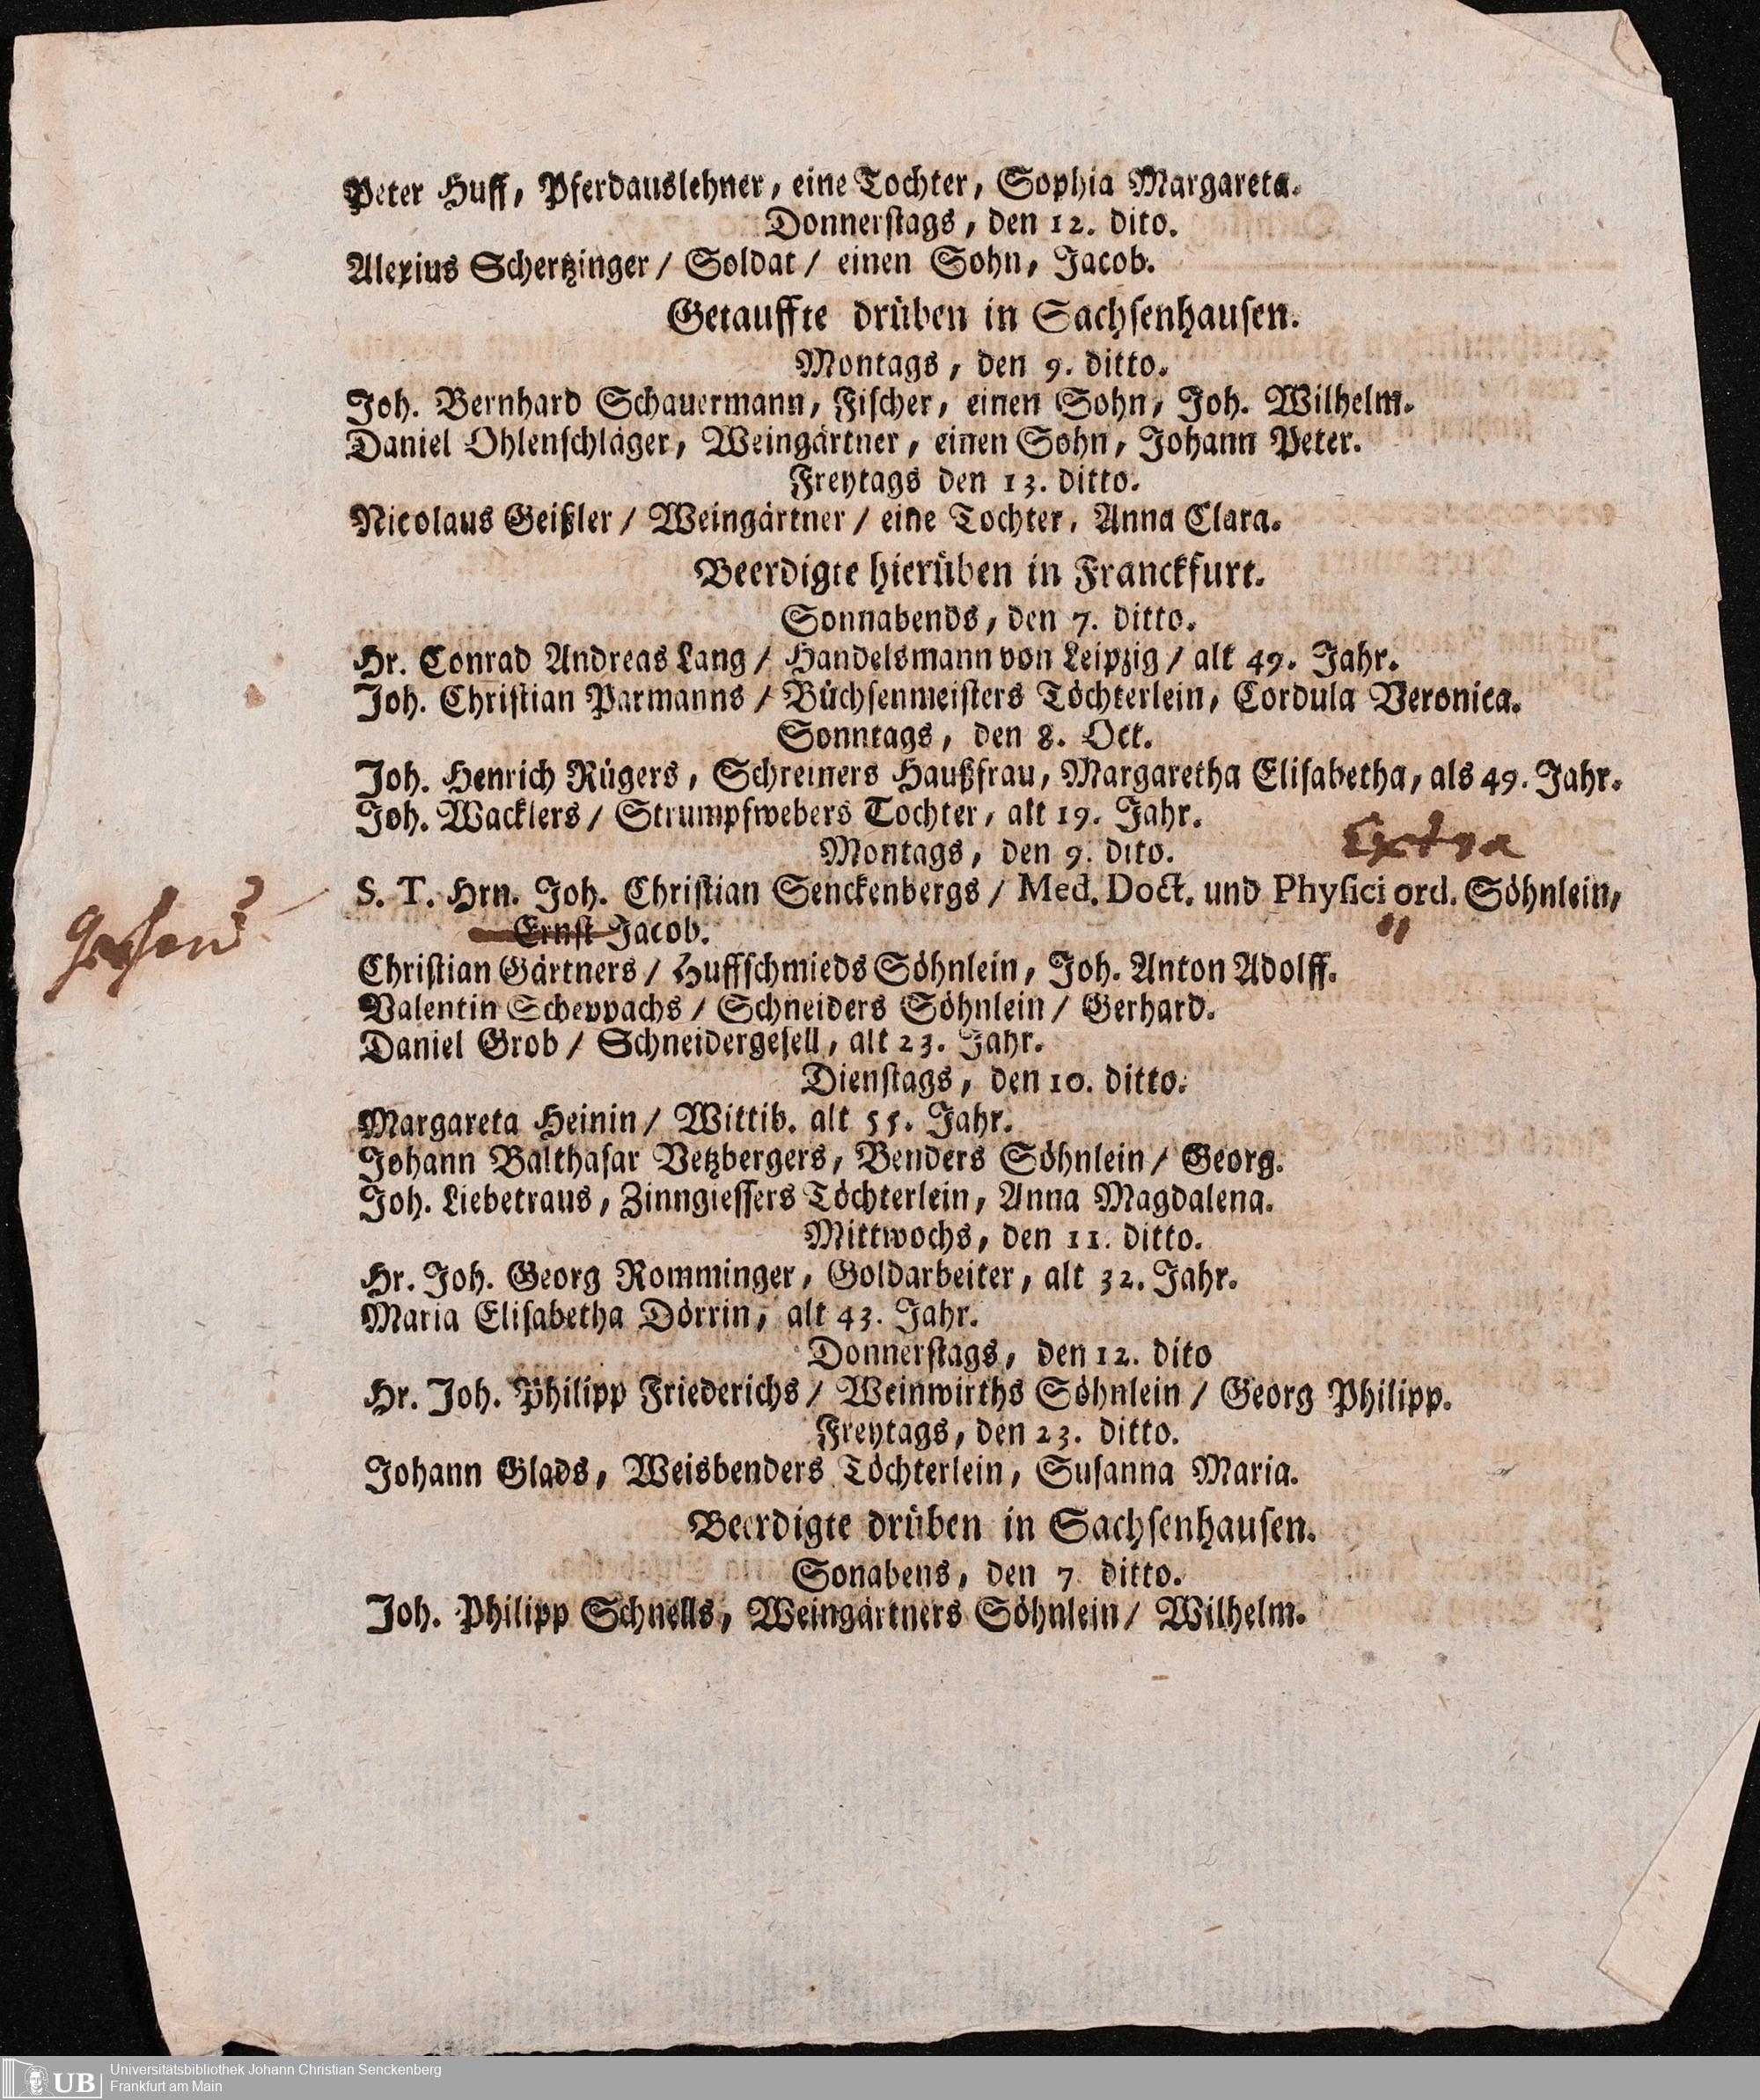 Peter Huff, Pferdauslehner, eine Tochter, Sophia Margareta.
Donnerſtags, den 12. dito.
Alexius Schertzinger / Soldat / einen Sohn, Jacob.
Getauffte drüben in Sachſenhauſen.
Montags, den 9. ditto.
Joh. Bernhard Schauermann, Fiſcher, einen Sohn, Joh. Wilhelm.
Daniel Ohlenſchläger, Weingärtner, einen Sohn, Johann Peter.
Freytags den 13. ditto.
Nicolaus Geißler / Weingärtner / eine Tochter, Anna Clara.
Beerdigte hierüben in Franckfurt.
Sonnabends, den 7. ditto.
Hr. Conrad Andreas Lang / Handelsmann von Leipzig / alt 49. Jahr.
Joh. Chriſtian Parmanns / Büchſenmeiſters Töchterlein, Cordula Veronica.
Sonntags, den 8. Oct.
Joh. Henrich Rügers, Schreiners Haußfrau, Margaretha Eliſabetha, als 49. Jahr.
Joh. Wacklers / Strumpfwebers Tochter, alt 19. Jahr.
Extra
Montags, den 9. dito.
S. T. Hrn. Joh. Chriſtian Senckenbergs / Med. Doct. und Phyſici ord. Söhnlein,
Ernſt Jacob.
Chriſtian Gärtners / Huffſchmieds Söhnlein, Joh. Anton Adolff.
Valentin Scheppachs / Schneiders Söhnlein / Gerhard.
Daniel Grob / Schneidergeſell, alt 23. Jahr.
Dienſtags, den 10. ditto.
Margareta Heinin / Wittib. alt 55. Jahr.
Johann Balthaſar Vetzbergers, Benders Söhnlein / Georg.
Joh. Liebetraus, Zinngieſſers Töchterlein, Anna Magdalena.
Mittwochs, den 11. ditto.
Hr. Joh. Georg Romminger, Goldarbeiter, alt 32. Jahr.
Maria Eliſabetha Dörrin, alt 43. Jahr.
Donnerſtags, den 12. dito
Hr. Joh. Philipp Friederichs / Weinwirths Söhnlein / Georg Philipp.
Freytags, den 23. ditto.
Johann Glads, Weisbenders Töchterlein, Suſanna Maria.
Beerdigte drüben in Sachſenhauſen.
Sonabens, den 7 ditto.
Joh. Philipp Schnells, Weingärtners Söhnlein / Wilhelm.
UB
Universitätsbibliothek Johann Christian Senckenberg
Frankfurt am Main